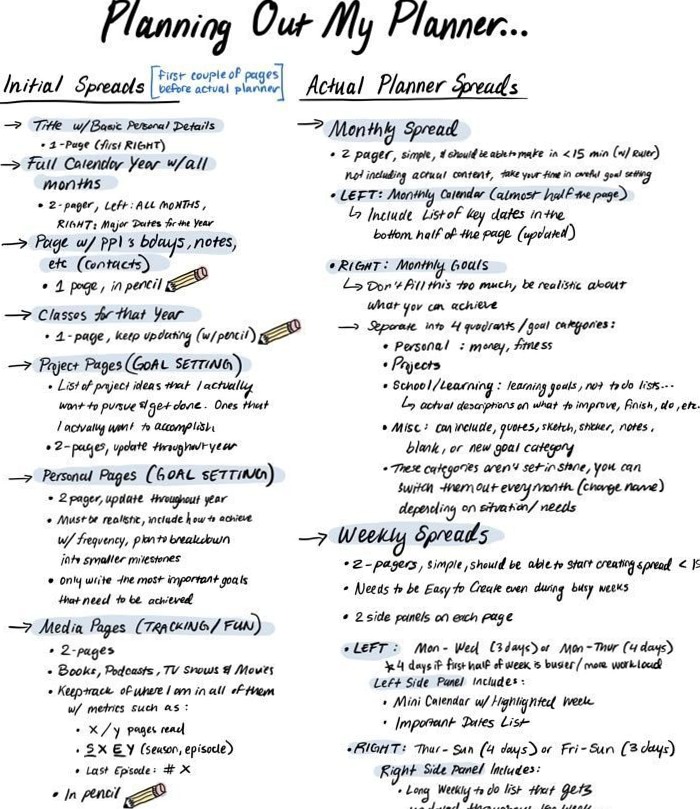 Planning Out My Planner...
Initial Spreads
[first couple of pages
before actual planner]
→ Title w/Basic Personal Details
• 1-Page (first RIGHT)
→ Full Calendar Year w/all
months
• 2-pager, Left: ALL MONTHS,
RIGHT: Major Dates for the Year
→ Page w/ ppl's bdays, notes,
etc (contacts)
• 1 page, in pencil
→ Classes for that Year
• 1-page, keep updating (w/pencil)
→ Project Pages (GOAL SETTING)
• List of project ideas that I actually
want to pursue & get done. Ones that
I actually want to accomplish
• 2-pages, update throughout year
→ Personal Pages (GOAL SETTING)
• 2 pager, update throughout year
• Must be realistic, include how to achieve
w/ frequency, plan to breakdown
into smaller milestones
• Only write the most important goals
that need to be achieved
→ Media Pages (TRACKING/FUN)
• 2-pages
• Books, Podcasts, TV Shows & Movies
• Keep track of where I am in all of them
w/ metrics such as:
• X/y pages read
• S X E Y (season, episode)
• Last Episode: # X
• In pencil
Actual Planner Spreads
→ Monthly Spread
• 2 pager, simple, & should be able to make in <15 min (w/ Ruler)
not including actual content, take your time in careful goal setting
• LEFT: Monthly Calendar (almost half the page)
↳ Include List of key dates in the
bottom half of the page (updated)
• RIGHT: Monthly Goals
↳ Don't fill this too much, be realistic about
what you can achieve
→ Separate into 4 quadrants/goal categories:
• Personal : money, fitness
• Projects
• School/Learning : learning goals, not to do lists...
↳ actual descriptions on what to improve, finish, do, etc.
• Misc : can include, quotes, sketch, sticker, notes,
blank, or new goal category
• These categories aren't set in stone, you can
switch them out every month (change name)
depending on situation/needs
→ Weekly Spreads
• 2-pagers, simple, should be able to start creating spread < 15
• Needs to be Easy to Create even during busy weeks
• 2 side panels on each page
• LEFT: Mon-Wed (3 days) or Mon-Thur (4 days)
* 4 days if first half of week is busier/more workload
Left Side Panel Includes:
• Mini Calendar w/ Highlighted Week
• Important Dates List
• RIGHT: Thur-Sun (4 days) or Fri-Sun (3 days)
Right Side Panel Includes:
• Long Weekly to do list that gets